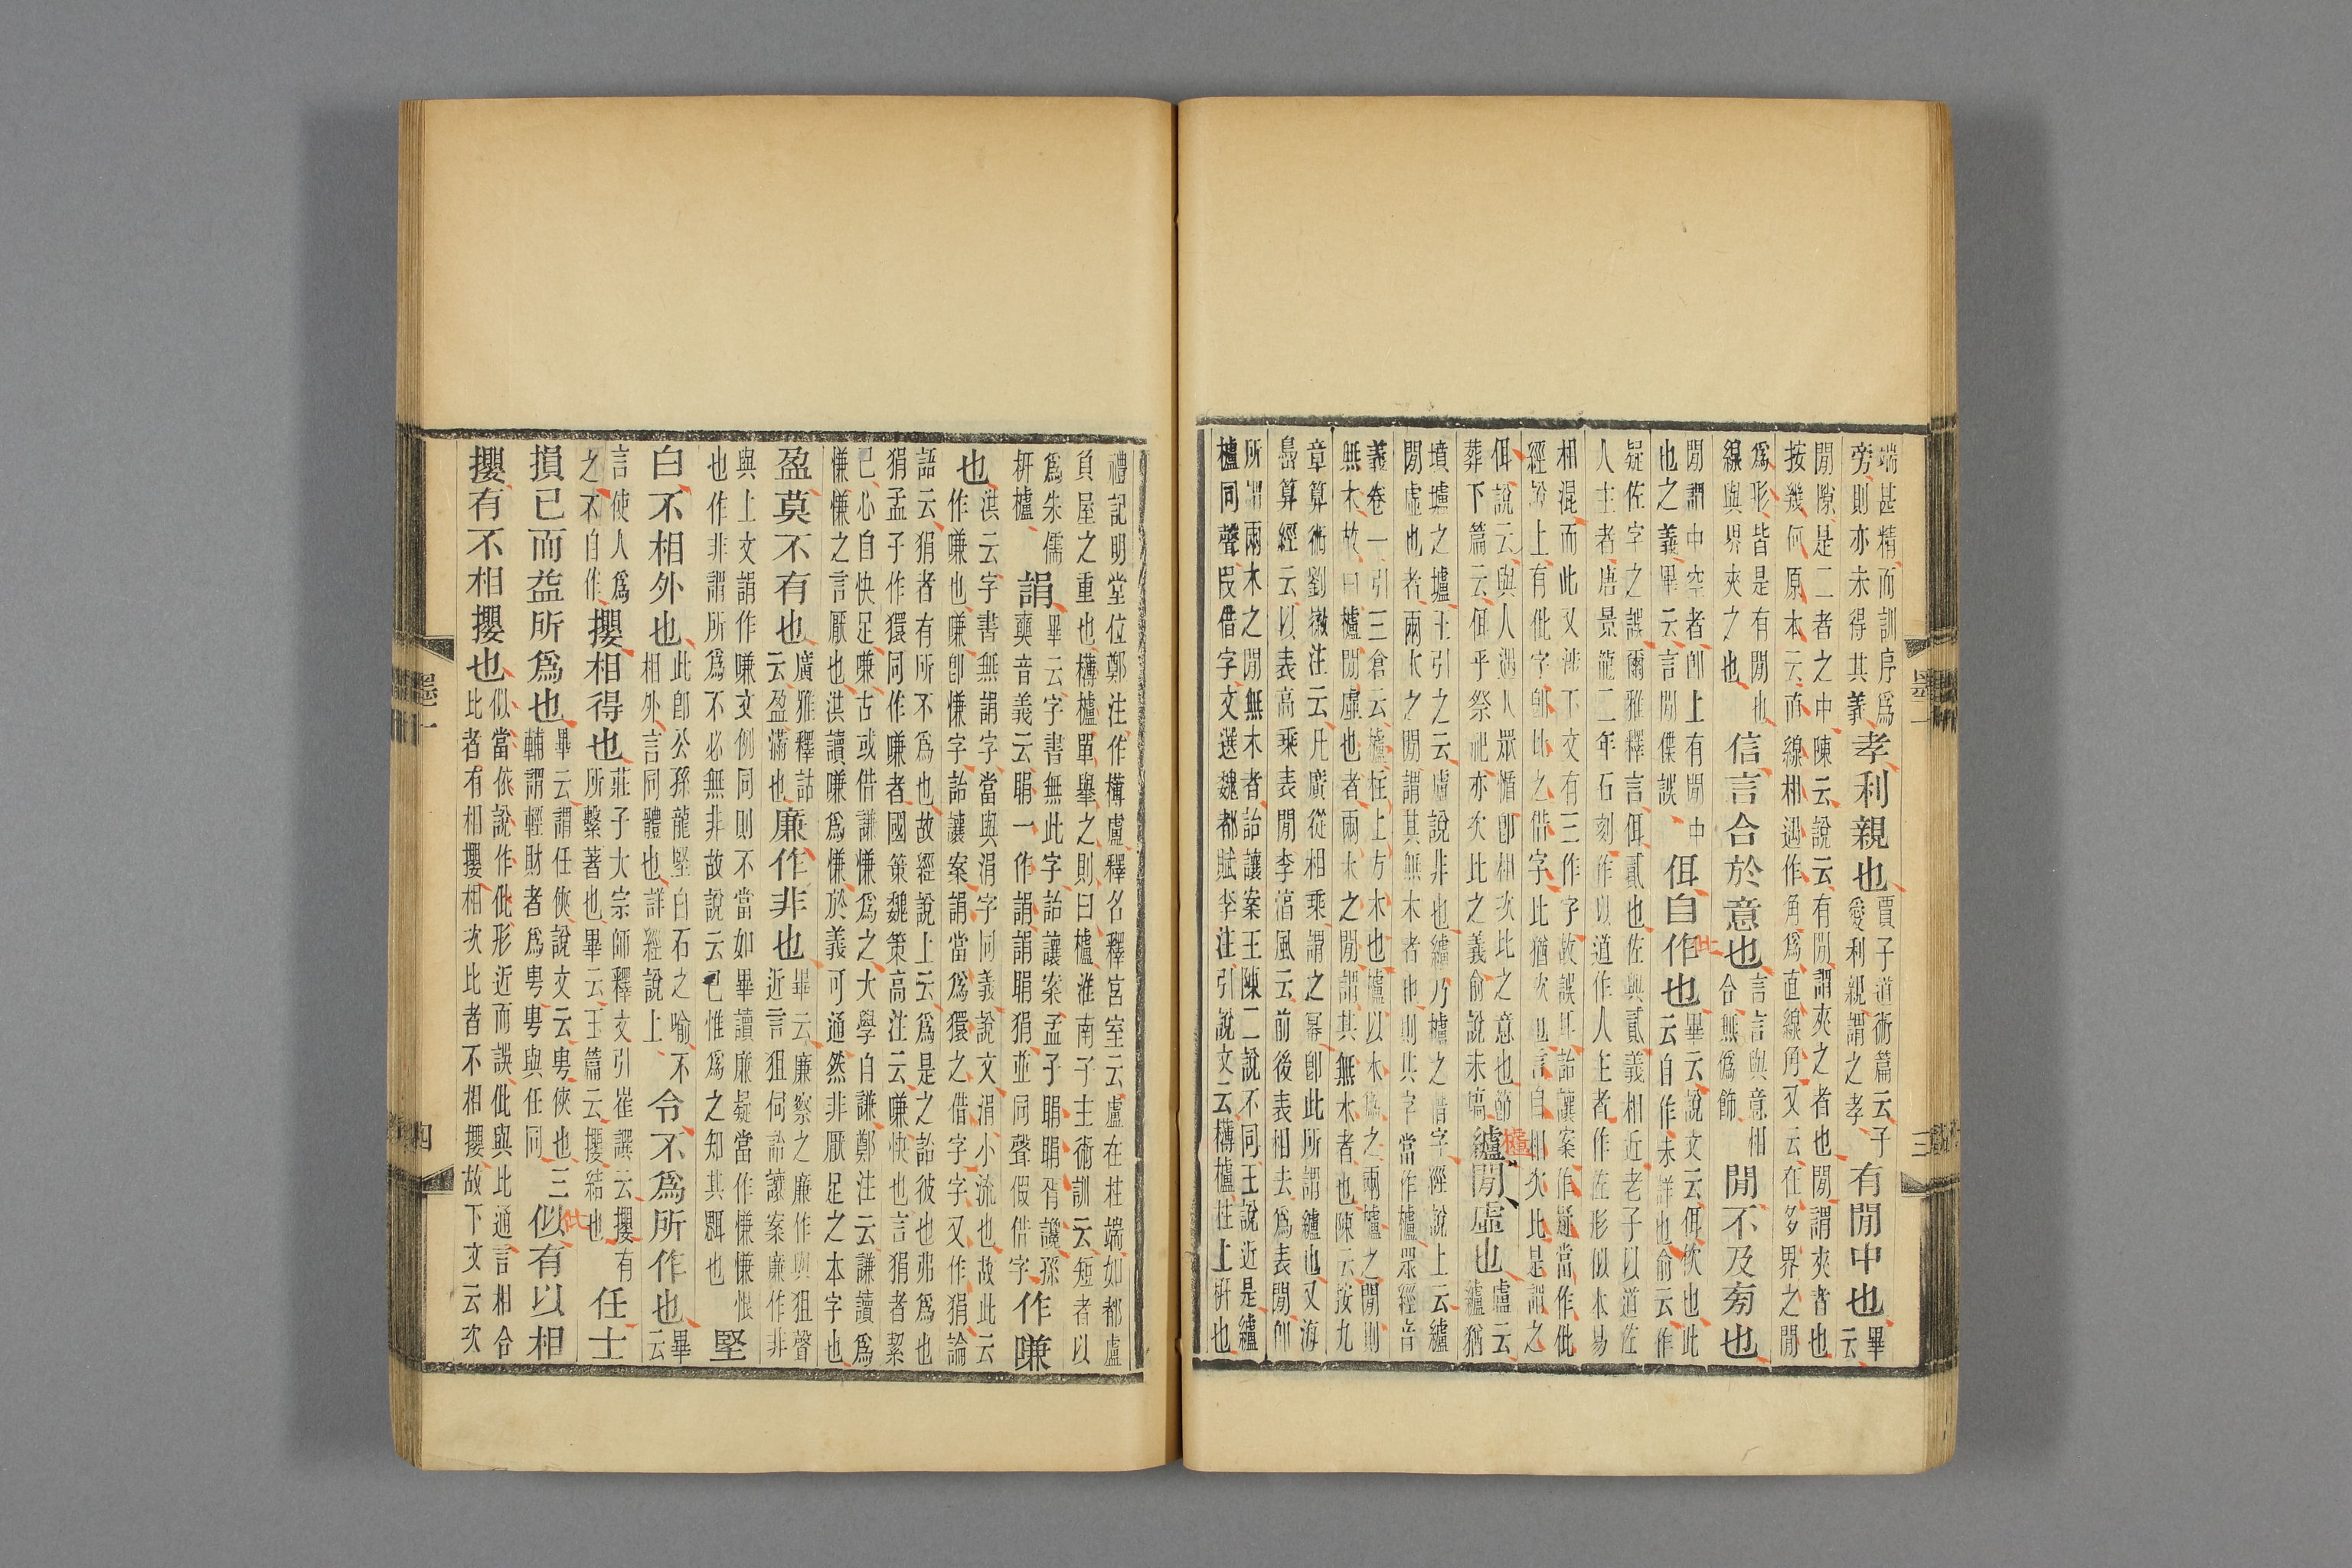 端甚精而訓序爲旁則亦未得其義孝利親也賈子道術篇云子愛利親謂之孝有閒中也畢云
閒隙是二者之中陳云說云有閒謂夾之者也閒謂夾者也
按幾何原本云直線相遇作角爲直線角又云在多界之閒
爲形皆是有閒也線與界夾之也信言合於意也言言與意相合無僞飾閒不及旁也
閒謂中空者卽上有閒中也之義畢云言閒傑誤佴自作也畢云說文云佴佽也此云自作未詳也俞云作
比
疑佐字之誤爾雅釋言佴貳也佐與貳義相近老子以道佐
人主者唐景龍二年石刻作以道作人主者作佐形似本易
相混而此又涉下文有三作字故誤耳詒讓案作疑當作仳
經說上有仳字卽比之借字此猶佽也言自相佽比是謂之
佴說云與人遇人眾惛卽相次比之意也節葬下篇云佴乎祭祀亦次比之義俞說未塙纑閒虛也盧云纑猶
櫨
墳壚之壚王引之云盧說非也纑乃櫨之借字經說上云纑
閒虛也者兩木之閒謂其無木者也則其字當作櫨眾經音
義卷一引三倉云櫨柱上方木也櫨以木爲之兩櫨之閒則
無木故曰櫨閒虛也者兩木之閒謂其無木者也陳云按九
章算術劉徽注云凡廣從相乘謂之冪卽此所謂纑也又海
島算經云以表高乘表閒李淳風云前後表相去爲表閒卽
所謂兩木之閒無木者詒讓案王陳二說不同王說近是纑
櫨同聲叚借字文選魏都賦李注引說文云欂櫨柱上枅也
禮記明堂位鄭注作欂盧釋名釋宮室云盧在柱端如都盧
負屋之重也欂櫨單舉之則曰櫨淮南子主術訓云短者以
爲朱儒枅櫨䛼畢云字書無此字詒讓案孟子睊睊胥讒孫奭音義云睊一作䛼䛼睊狷並同聲假借字作嗛
也淇云字書無䛼字當與涓字同義說文涓小流也故此云作嗛也嗛卽慊字詒讓案䛼當爲獧之借字字又作狷論
語云狷者有所不爲也故經說上云爲是之詒彼也弗爲也
狷孟子作獧同作嗛者國策魏策高注云嗛快也言狷者絜
己心自快足嗛古或借謙慊爲之大學自謙鄭注云謙讀爲
慊慊之言厭也淇讀嗛爲慊於義可通然非厭足之本字也
盈莫不有也廣雅釋詁云盈滿也廉作非也畢云廉察之廉作與狙聲近言狙伺詒讓案廉作非
與上文䛼作嗛文例同則不當如畢讀廉疑當作慊慊恨也作非謂所爲不必無非故說云己惟爲之知其䚷也堅
白不相外也此卽公孫龍堅白石之喻不相外言同體也詳經說上令不爲所作也畢云
言使人爲之不自作攖相得也莊子大宗師釋文引崔譔云攖有所繫著也畢云玉篇云攖結也任士
損己而益所爲也畢云謂任俠說文云甹俠也三輔謂輕財者爲甹甹與任同似有以相
仳
攖有不相攖也似當依說作仳形近而誤仳與比通言相合比者有相攖相次比者不相攖故下文云次
墨一
三
墨一
四